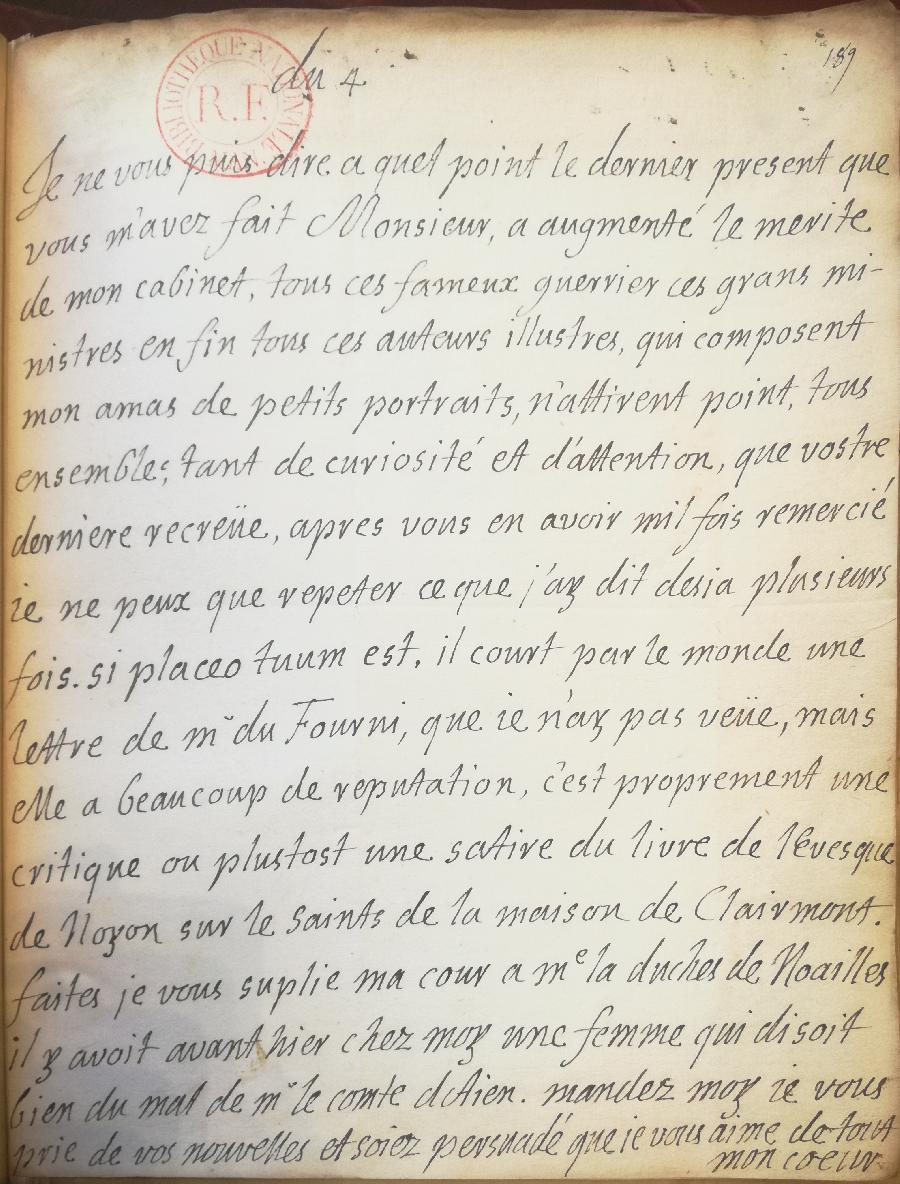 189
BIBLIOTHEQUE NATIONALE
R.F.
du 4
Je ne vous puis dire a quel point le dernier present que
vous m'avez fait Monsieur, a augmenté le merite
de mon cabinet, tous ces fameux guerrier ces grans mi-
nistres en fin tous ces auteurs illustres, qui composent
mon amas de petits portraits, n'attirent point, tous
ensemble; tant de curiosité et d'attention, que vostre
derniere recreüe, apres vous en avoir mil fois remercié
ie ne peux que repeter ce que j'ay dit desia plusieurs
fois. si placeo tuum est. il court par le monde une
lettre de mr du Fourni, que ie n'ay pas veüe, mais
elle a beaucoup de reputation, c'est proprement une
critique ou plustost une satire du livre de l'Evesque
de Noyon sur le saints de la maison de Clairmont.
faites je vous suplie ma cour a me la duches de Noailles
il y avoit avant hier chez moy une femme qui disoit
bien du mal de mr le comte d'Aien. mandez moy ie vous
prie de vos nouvelles et soiez persuadé que ie vous aime de tout
mon coeur